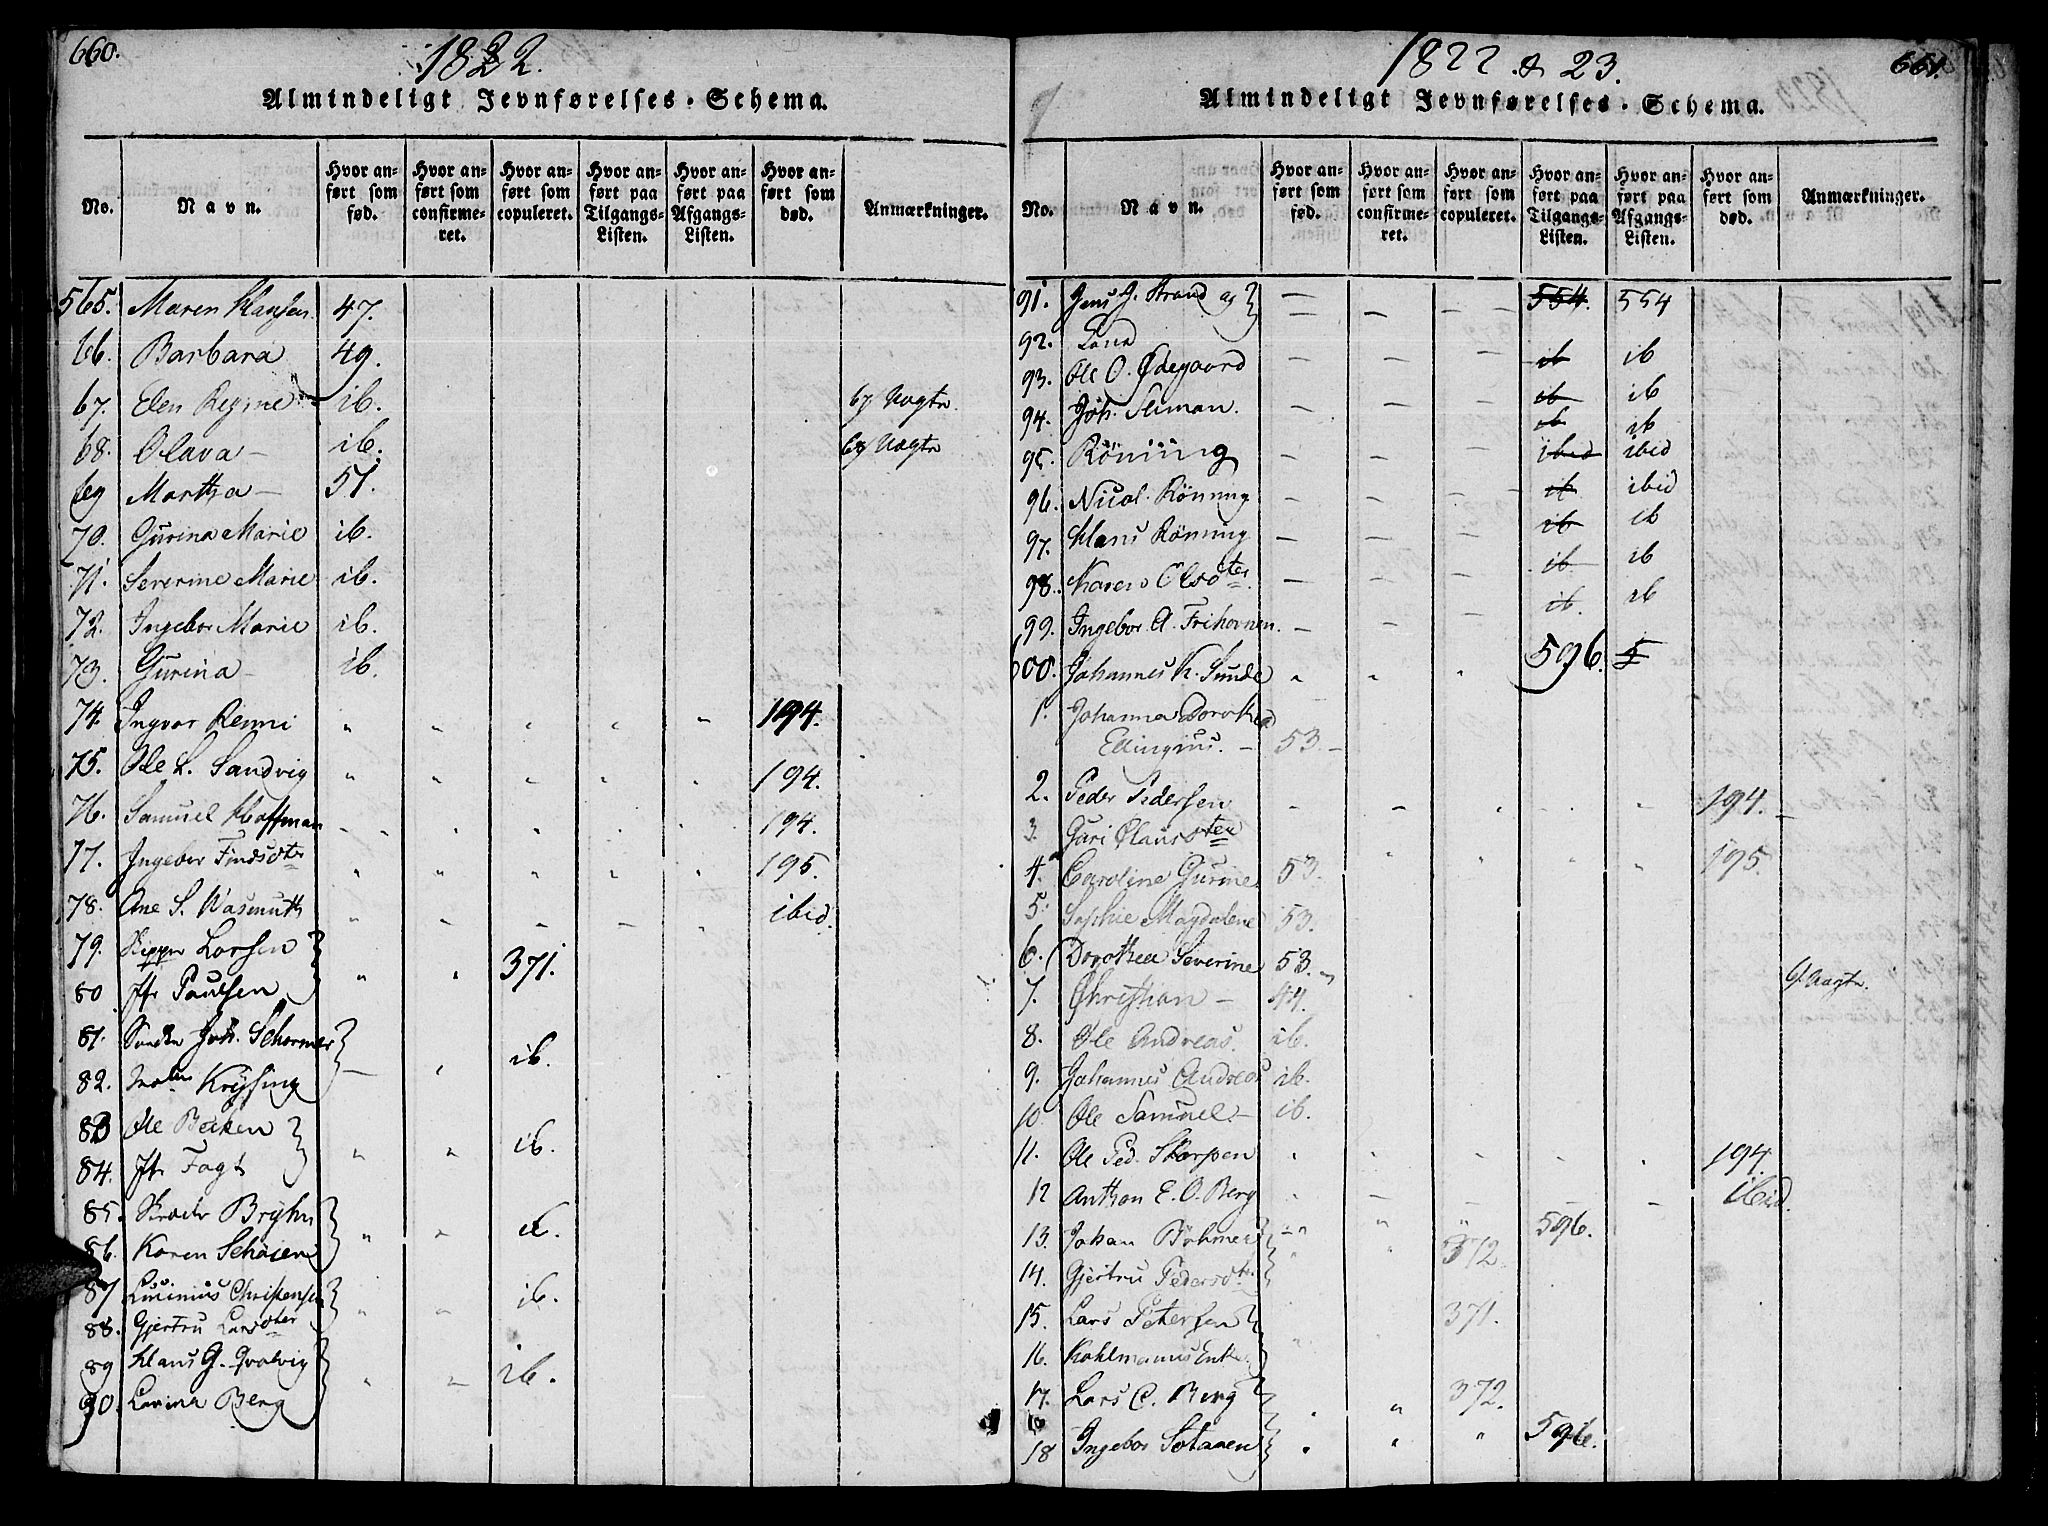 660.
1822.
Almindeligt Jevnførelses-Schema.
No. Navn. Hvor anført som fød. Hvor anført som confirmeret. Hvor anført som copuleret. Hvor anført paa Tilgangs-Listen. Hvor anført paa Afgangs-Listen. Hvor anført som død. Anmærkninger.
565. Maren Klausen 47.
66. Barbara 49.
67. Elen Regine ib. 67 Uægte.
68. Olava – ib. 68 Uægte
69 Martha – 51.
70. Gurina Marie ib.
71. Severine Marie ib.
72. Ingebor Marie ib.
73. Gurina – ib.
74. Ingvor Remmi " " " " " 194.
75. Ole L. Sandvig " " " " " 194.
76. Samuel Hoffman 194.
77. Ingebor Findsdter " " " " " 195.
78. Ane S. Wasmuth ibid.
79. Skipper Larsen } " " 371.
80 Jfr Paulsen
81. Joh. Schormer } ib.
82. Krysing
83 Ole Backen } " " ib.
84. Jfr Fogt
85. Bryhn } " " ib.
86. Karen Schøien
87 Christensen } " " ib.
88. Gjertru Larsdter
89 Klaus G. Qvalvig } " – ib.
90. Lavina Berg
1822 & 23. 661.
Almindeligt Jevnførelses-Schema.
No. Navn. Hvor anført som fød. Hvor anført som confirmeret. Hvor anført som copuleret. Hvor anført paa Tilgangs-Listen. Hvor anført paa Afgangs-Listen. Hvor anført som død. Anmærkninger.
91. Jens G. Strand og } – – – 554. 554
92. Lana
93. Ole O. Ødegaard – – – ib ib
94. Joh. Sliman. – – – ib ib
95. Rönning – – – ibid ibid
96. Nicol. Rönning – – – ib ibid
97. Klaus Rönning – – – ib ib
98. Karen Olsdter – – – ib ib
99. Ingebor A. Frihavnen. – – – ib. ib
600. Johannes K. Sunde " " " 596.
1. Johanna Dorothea
Edingius. – 53. –
2. Peder Pedersen 194.
3. Guri Clausdter 195.
4. Caroline Gurine 53.
5. Sophie Magdalene 53.
6. Dorothea Severine 53.
7. Christian – 44. 9. Uægte.
8. Ole Andreas. ib.
9. Johannes Andreas ib.
10. Ole Samuel – ib.
11. Ole Ped. Skarpen 194.
12 Anthon E. O. Berg ibid.
13. Johan Böhmer } 372 596.
14. Gjertru Pedersdtr
15. Lars Petersen } 371.
16. Kohlmanns Enke
17. Lars C. Berg } " " 372.
18 Ingebor Sotaaen " " " 596.